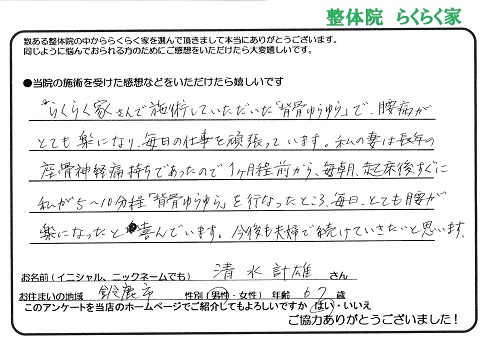 整体院 らくらく家
数ある整体院の中かららくらく家を選んで頂きまして本当にありがとうございます。
同じように悩んでおられる方のためにご感想をいただけたら大変嬉しいです。
●当院の施術を受けた感想などをいただけたら嬉しいです
らくらく家さんで施術していただいた「背骨ゆらゆら」で、腰痛が
とても楽になり、毎日の仕事を頑張っています。私の妻は長年の
座骨神経痛持ちであったので1ヶ月程前から、毎朝、起床後すぐに
私が5〜10分程「背骨ゆらゆら」を行なったところ、毎日、とても腰が
楽になったと喜んでいます。今後も夫婦で続けていきたいと思います。
お名前(イニシャル、ニックネームでも) 清水計雄 さん
お住まいの地域 鈴鹿市 性別(男性・女性) 年齢 67 歳
このアンケートを当店のホームページでご紹介してもよろしいですか はい・いいえ
ご協力ありがとうございました!